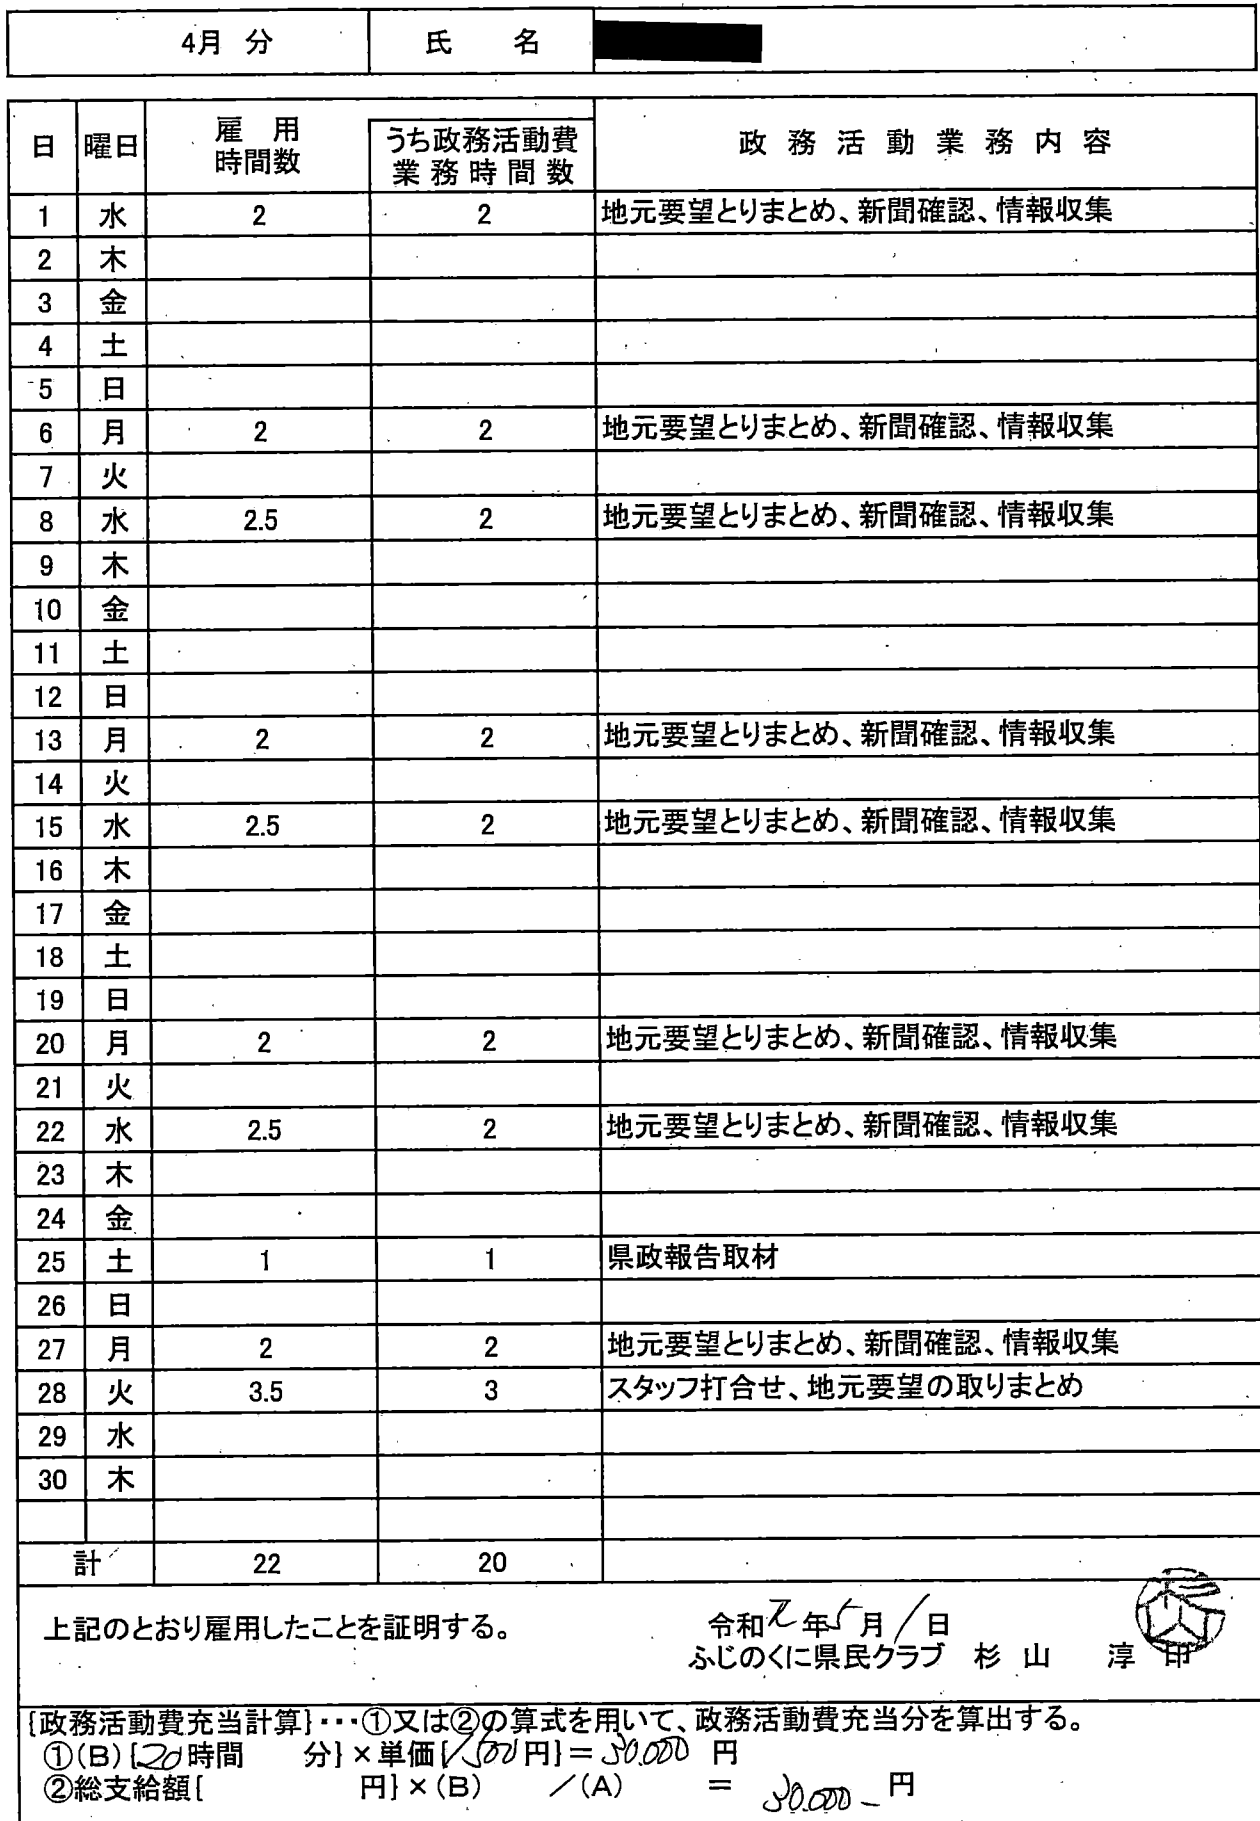 4月 分 氏 名
日 曜日 雇用時間数 うち政務活動費業務時間数 政務活動業務内容
1 水 2 2 地元要望とりまとめ、新聞確認、情報収集
2 木
3 金
4 土
5 日
6 月 2 2 地元要望とりまとめ、新聞確認、情報収集
7 火
8 水 2.5 2 地元要望とりまとめ、新聞確認、情報収集
9 木
10 金
11 土
12 日
13 月 2 2 地元要望とりまとめ、新聞確認、情報収集
14 火
15 水 2.5 2 地元要望とりまとめ、新聞確認、情報収集
16 木
17 金
18 土
19 日
20 月 2 2 地元要望とりまとめ、新聞確認、情報収集
21 火
22 水 2.5 2 地元要望とりまとめ、新聞確認、情報収集
23 木
24 金
25 土 1 1 県政報告取材
26 日
27 月 2 2 地元要望とりまとめ、新聞確認、情報収集
28 火 3.5 3 スタッフ打合せ、地元要望の取りまとめ
29 水
30 木
計 22 20
上記のとおり雇用したことを証明する。 令和元年5月1日
ふじのくに県民クラブ 杉 山 淳 印
[政務活動費充当計算]・・・①又は②の算式を用いて、政務活動費充当分を算出する。
①(B)[20時間 分]×単価[1,500円]=30.000 円
②総支給額[ 円]×(B) /(A) = 30.000- 円